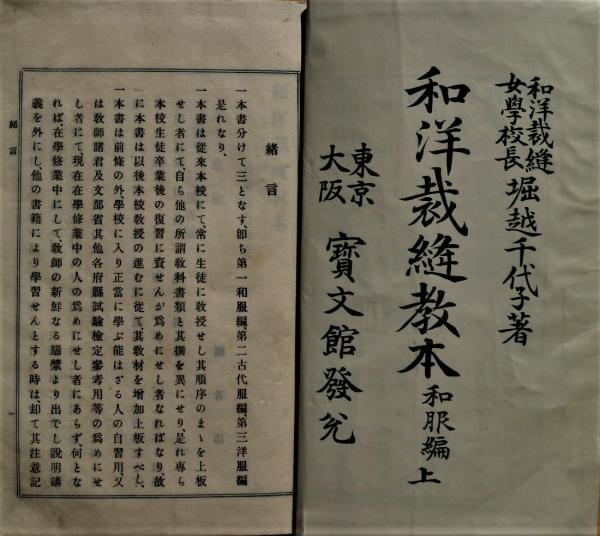 和洋裁縫
女學校長
堀越千代子著
和洋裁縫教本 和服編 上
東京
大阪
寶文館發兌
緒言
一本書分けて三となす、卽ち第一和服編、第二古代服編、第三洋服編
是れなり、
一本書は從來本校にて、常に生徒に敎授せし其順序のまゝを上板
せし者にて、自ら他の所謂敎科書類と其撰を異にせり、是れ專ら
本校生徒卒業後の復習に資せんが爲めにせし者なればなり、故
に本書は以後本校敎授の進むに從て、其敎材を增加上板すべし、
一本書は前條の外、學校に入り正當に學ぶ能はざる人の自習用、又
は敎師諸君及文部省其他各府縣試驗檢定參考用等の爲めにせ
し者にて、現在在學修業中の人の爲めにせし者にあらず、何とな
れば、在學修業中にして、敎師の新鮮なる腦漿より出でし說明講
義を外にし、他の書籍により學習せんとする時は、却て其注意記
緖言